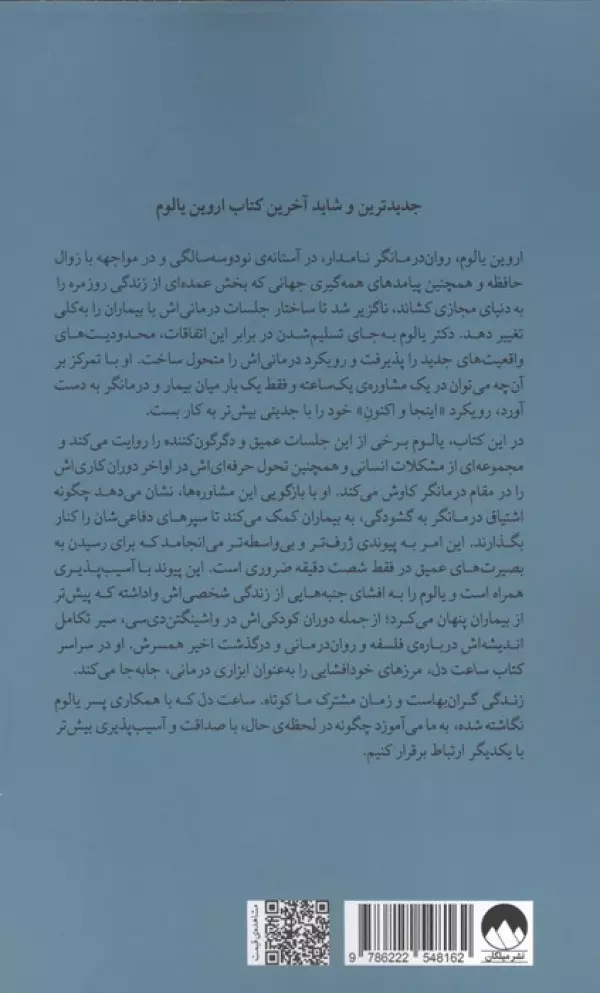 جدیدترین و شاید آخرین کتاب اروین یالوم
اروین یالوم، روان‌درمانگر نامدار، در آستانه‌ی نودوسه‌سالگی و در مواجهه با زوال
حافظه و همچنین پیامدهای همه‌گیری جهانی که بخش عمده‌ای از زندگی روزمره را
به دنیای مجازی کشاند، ناگزیر شد تا ساختار جلسات درمانی‌اش با بیماران را به‌کلی
تغییر دهد. دکتر یالوم به‌جای تسلیم‌شدن در برابر این اتفاقات، محدودیت‌های
واقعیت‌های جدید را پذیرفت و رویکرد درمانی‌اش را متحول ساخت. او با تمرکز بر
آن‌چه می‌توان در یک مشاوره‌ی یک‌ساعته و فقط یک بار میان بیمار و درمانگر به دست
آورد، رویکرد «اینجا و اکنونِ» خود را با جدیتی بیش‌تر به کار بست.
در این کتاب، یالوم برخی از این جلسات عمیق و دگرگون‌کننده را روایت می‌کند و
مجموعه‌ای از مشکلات انسانی و همچنین تحول حرفه‌ای‌اش در اواخر دوران کاری‌اش
را در مقام درمانگر کاوش می‌کند. او با بازگویی این مشاوره‌ها، نشان می‌دهد چگونه
اشتیاق درمانگر به گشودگی، به بیماران کمک می‌کند تا سپرهای دفاعی‌شان را کنار
بگذارند. این امر به پیوندی ژرف‌تر و بی‌واسطه‌تر می‌انجامد که برای رسیدن به
بصیرت‌های عمیق در فقط شصت دقیقه ضروری است. این پیوند با آسیب‌پذیری
همراه است و یالوم را به افشای جنبه‌هایی از زندگی شخصی‌اش واداشته که پیش‌تر
از بیماران پنهان می‌کرد؛ ازجمله دوران کودکی‌اش در واشینگتن‌دی‌سی، سیر تکامل
اندیشه‌اش درباره‌ی فلسفه و روان‌درمانی و درگذشت اخیر همسرش. او در سراسر
کتاب ساعت دل، مرزهای خودافشایی را به‌عنوان ابزاری درمانی، جابه‌جا می‌کند.
زندگی گران‌بهاست و زمان مشترک ما کوتاه. ساعت دل که با همکاری پسر یالوم
نگاشته شده، به ما می‌آموزد چگونه در لحظه‌ی حال، با صداقت و آسیب‌پذیری بیش‌تر
با یکدیگر ارتباط برقرار کنیم.
مشاهده‌ی قیمت
9 786222 548162
نشر میلکان